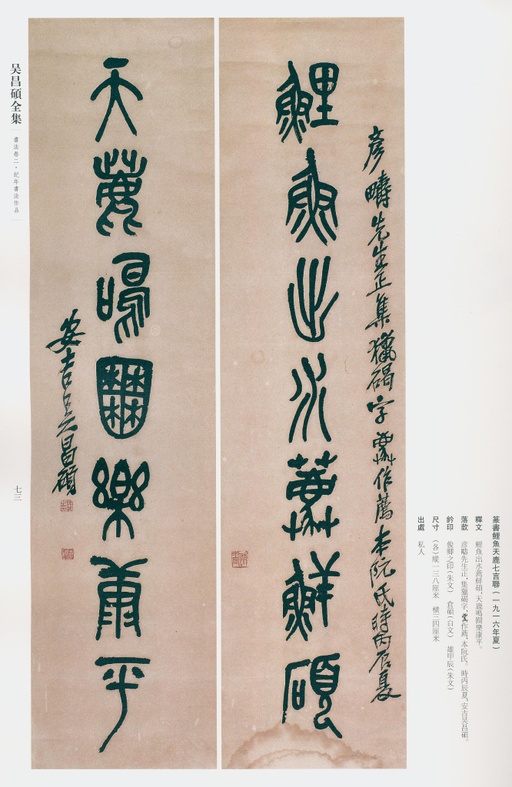 鯉魚出水𧂐鮮碩
彥疇先生正集獵碣字𧂐作薦本阮氏時丙辰夏
天鹿鳴囿樂康平
安吉吳昌碩
吴昌碩全集
書法卷二·紀年書法作品
七三
篆書鯉魚天鹿七言聯（一九一六年夏）
釋文 鯉魚出水薦鮮碩，天鹿鳴囿樂康平。
落款 彥疇先生正，集獵碣字，𧂐作薦，本阮氏，時丙辰夏，安吉吳昌碩。
鈐印 俊卿之印（朱文） 倉碩（白文） 雄甲辰（朱文）
尺寸 （各）縱一三八厘米 橫三四厘米
出處 私人